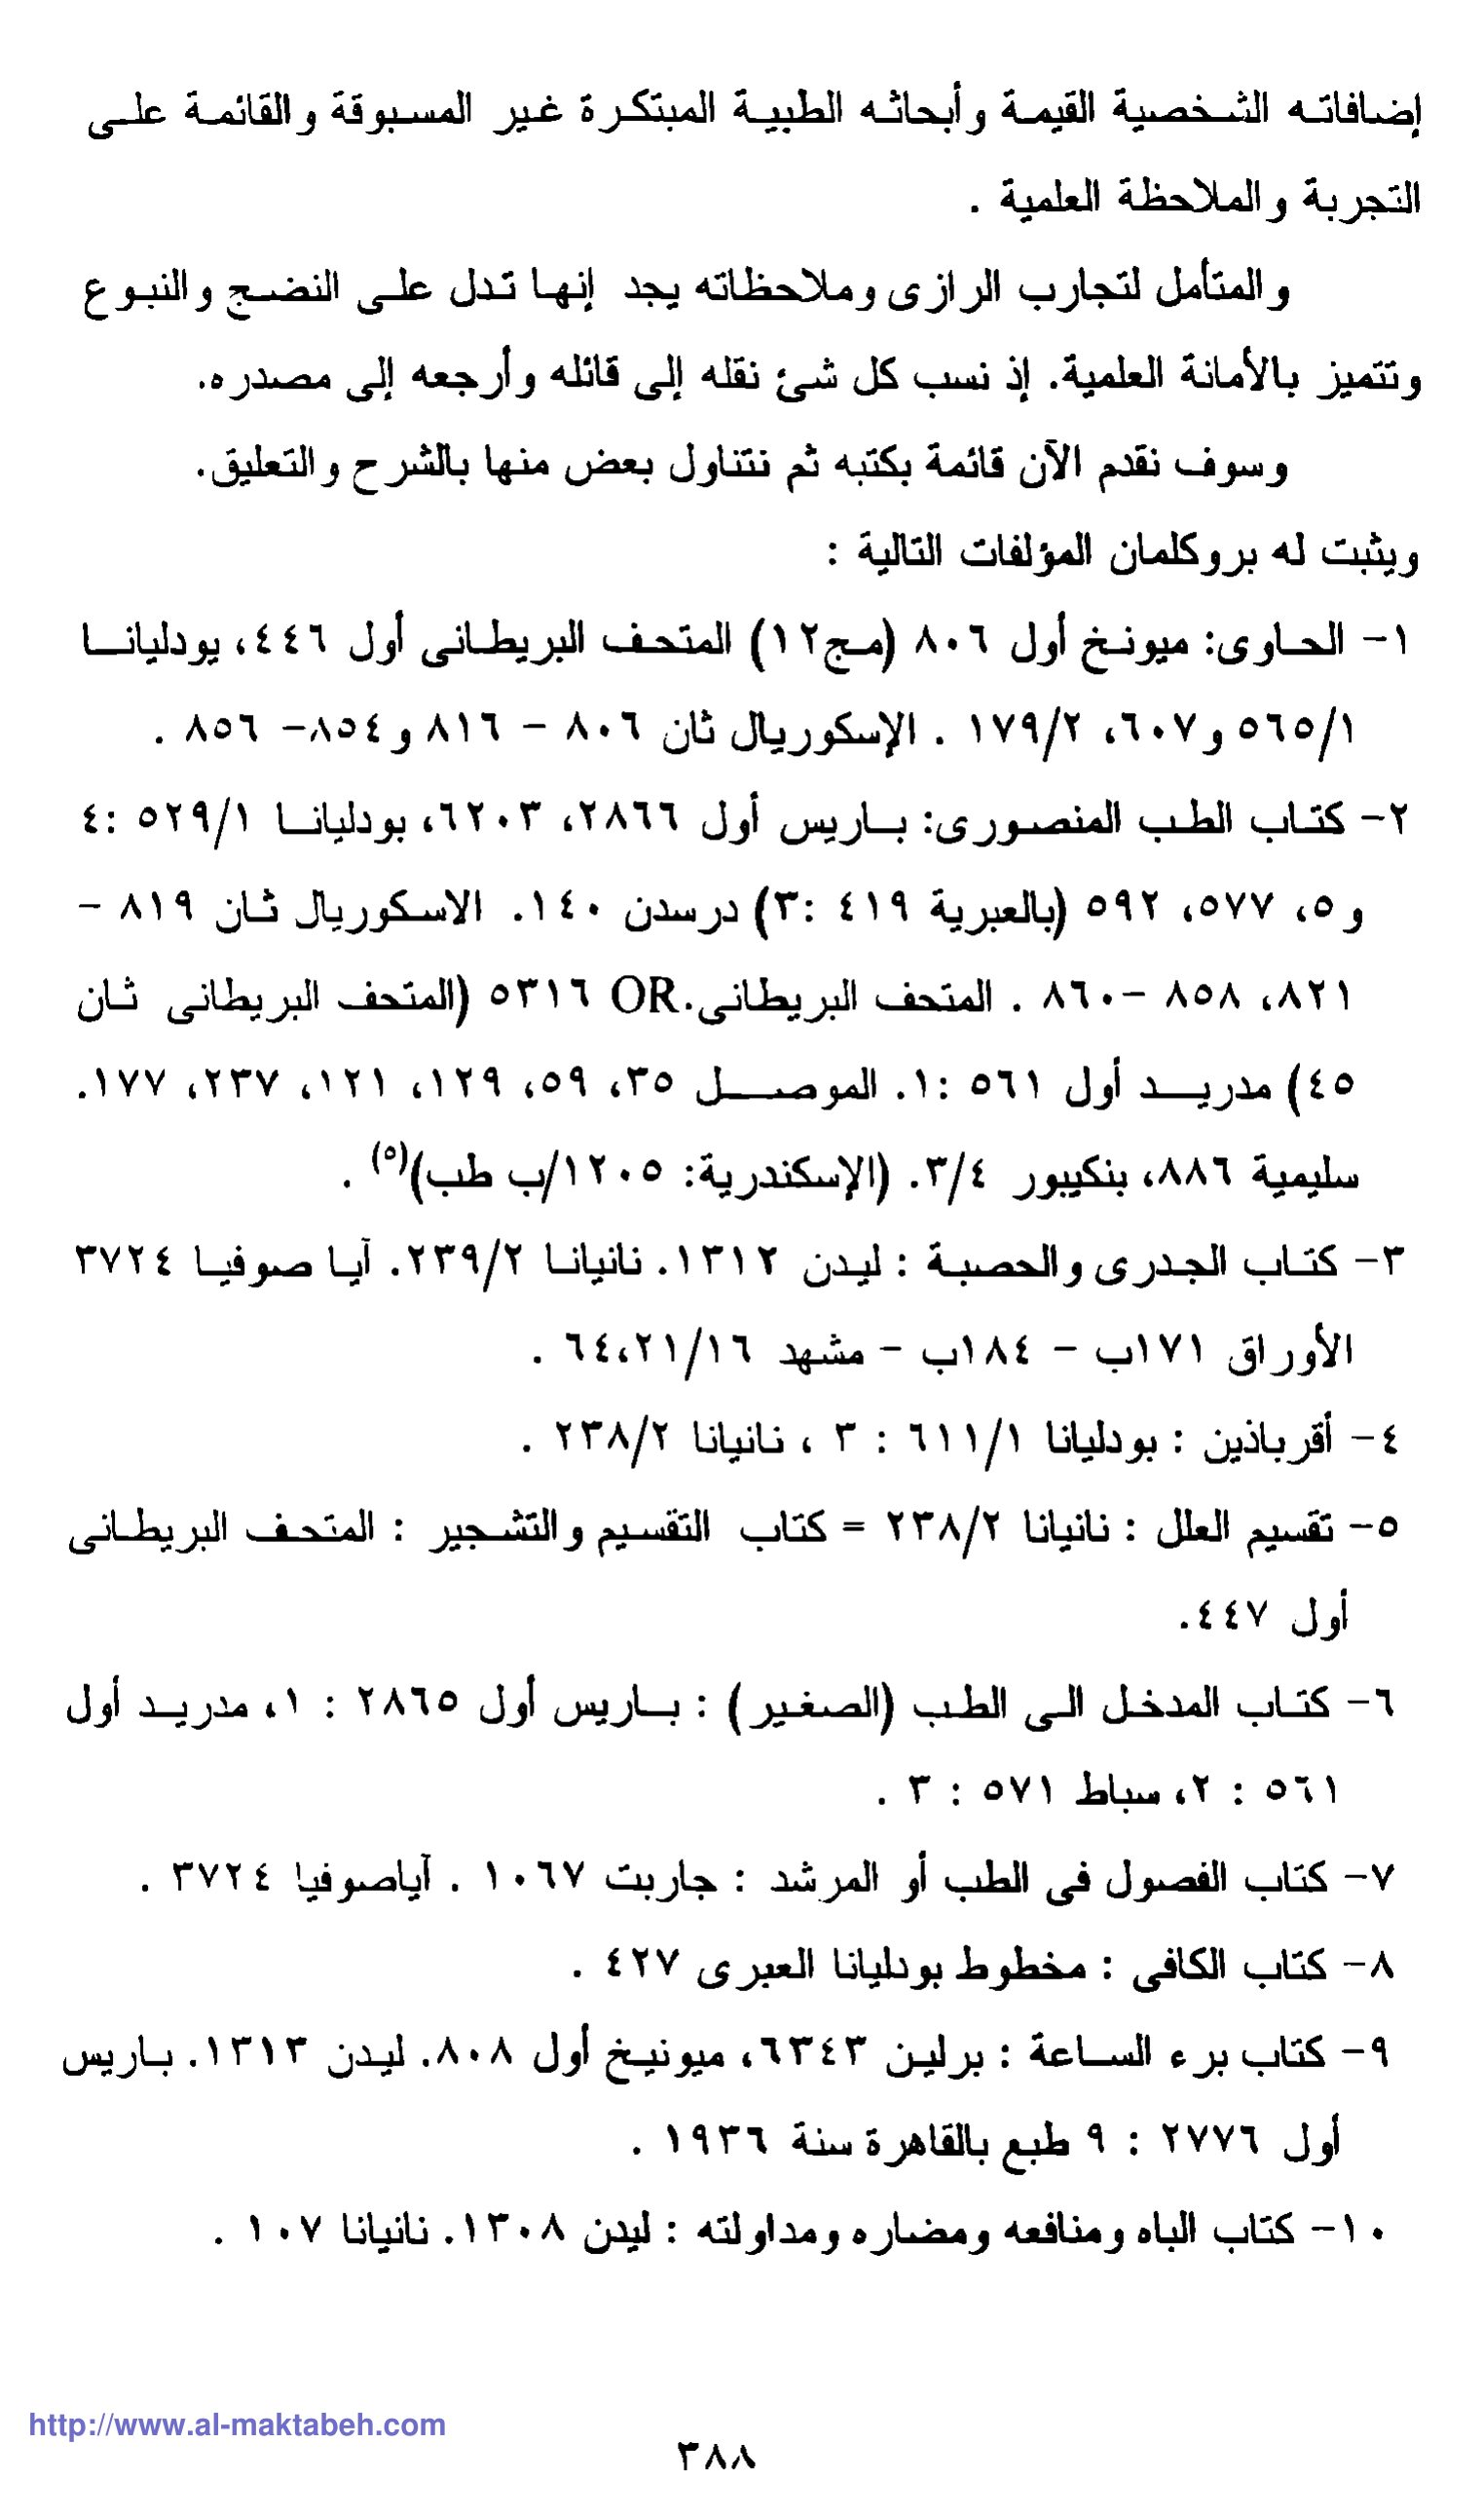 إضافاته الشخصية القيمة وأبحاثه الطبية المبتكرة غير المسبوقة والقائمة على
التجربة والملاحظة العلمية .
والمتأمل لتجارب الرازى وملاحظاته يجد إنها تدل على النضج والنبوع
وتتميز بالأمانة العلمية. إذ نسب كل شئ نقله إلى قائله وأرجعه إلى مصدره.
وسوف نقدم الآن قائمة بكتبه ثم نتناول بعض منها بالشرح والتعليق.
ويثبت له بروكلمان المؤلفات التالية :
١- الحاوى: ميونخ أول ٨٠٦ (مج١٢) المتحف البريطانى أول ٤٤٦، يودليانا
٥٦٥/١ و٦٠٧، ١٧٩/٢ . الإسكوريال ثان ٨٠٦ - ٨١٦ و٨٥٤- ٨٥٦ .
٢- كتاب الطب المنصورى: باريس أول ٢٨٦٦، ٦٢٠٣، بودليانا ٥٢٩/١ :٤
و٥، ٥٧٧، ٥٩٢ (بالعبرية ٤١٩ :٣) درسدن ١٤٠. الاسكوريال ثان ٨١٩ -
٨٢١، ٨٥٨ -٨٦٠ . المتحف البريطانى.OR ٥٣١٦ (المتحف البريطانى ثان
٤٥) مدريد أول ٥٦١ :١. الموصل ٣٥، ٥٩، ١٢٩، ١٢١، ٢٣٧، ١٧٧.
سليمية ٨٨٦، بنكيبور ٣/٤. (الإسكندرية: ١٢٠٥/ب طب)(٥) .
٣- كتاب الجدرى والحصبة : ليدن ١٣١٢. نانيانا ٢٣٩/٢. آيا صوفيا ٣٧٢٤
الأوراق ١٧١ب - ١٨٤ب - مشهد ٦٤،٢١/١٦ .
٤- أقرباذين : بودليانا ٦١١/١ : ٣ ، نانيانا ٢٣٨/٢ .
٥- تقسيم العلل : نانيانا ٢٣٨/٢ = كتاب التقسيم والتشجير : المتحف البريطانى
أول ٤٤٧.
٦- كتاب المدخل الى الطب (الصغير) : باريس أول ٢٨٦٥ : ١، مدريد أول
٥٦١ : ٢، سباط ٥٧١ : ٣ .
٧- كتاب الفصول فى الطب أو المرشد : جاربت ١٠٦٧ . آياصوفيا ٣٧٢٤ .
٨- كتاب الكافى : مخطوط بودليانا العبرى ٤٢٧ .
٩- كتاب برء الساعة : برلين ٦٣٤٣، ميونيخ أول ٨٠٨. ليدن ١٣١٣. باريس
أول ٢٧٧٦ : ٩ طبع بالقاهرة سنة ١٩٣٦ .
١٠- كتاب الباه ومنافعه ومضاره ومداولته : ليدن ١٣٠٨. نانيانا ١٠٧ .
http://www.al-maktabeh.com
٣٨٨